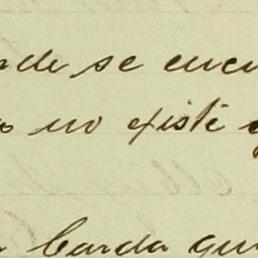 de se encu
no existe
barda que